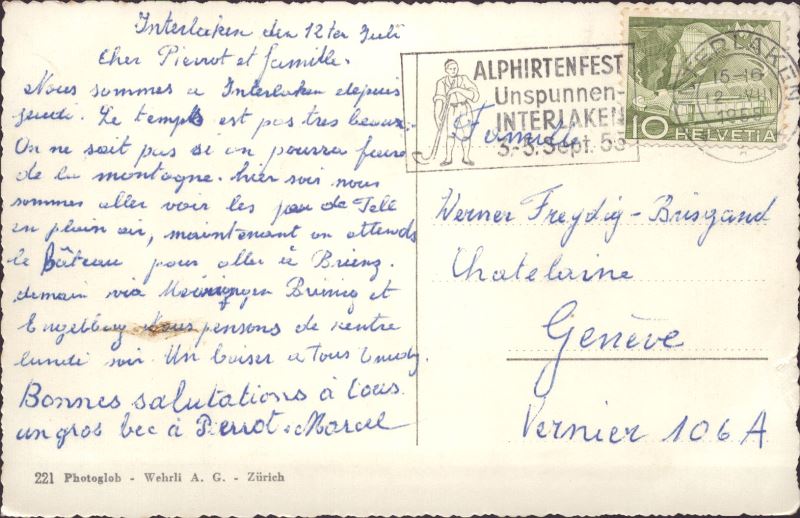 Interlaken den 12ter Juli
Cher Pierrot et famille.
Nous sommes a Interlaken depuis
jeudi. Le temps est pas tres beaux.
On ne sait pas si on pourra faire
de la montagne. hier soir nous
sommes aller voir les jeu de Tell
en plein air, maintenant on attends
le bâteau pour aller à Brienz.
demain via Meiringen Brünig et
Engelberg Nous pensons de rentre
lundi soir. Un baiser a tous
Bonnes salutations à tous
un gros bec à Pierrot Marcel
221 Photoglob - Wehrli A. G. - Zürich
ALPHIRTENFEST
Unspunnen-
INTERLAKEN
3.-5. Sept. 55
INTERLAKEN
15-16
12. VII
10 HELVETIA
Famille
Werner Freydig-Brisgand
Chatelaine
Genève
Vernier 106 A